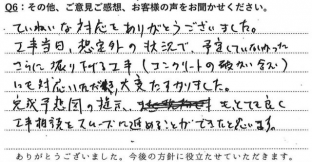 Q6：その他、ご意見ご感想、お客様の声をお聞かせください。
ていねいな対応をありがとうございました。
工事当日、想定外の状況で、予定していなかった
さらに掘り下げる工事（コンクリートの破砕い含む）
にも対応いただき大変たすかりました。
完成予想図の提示、もとても良く
工事相談をスムーズに進めることができたと思います。
ありがとうございました。今後の方針に役立たせていただきます。